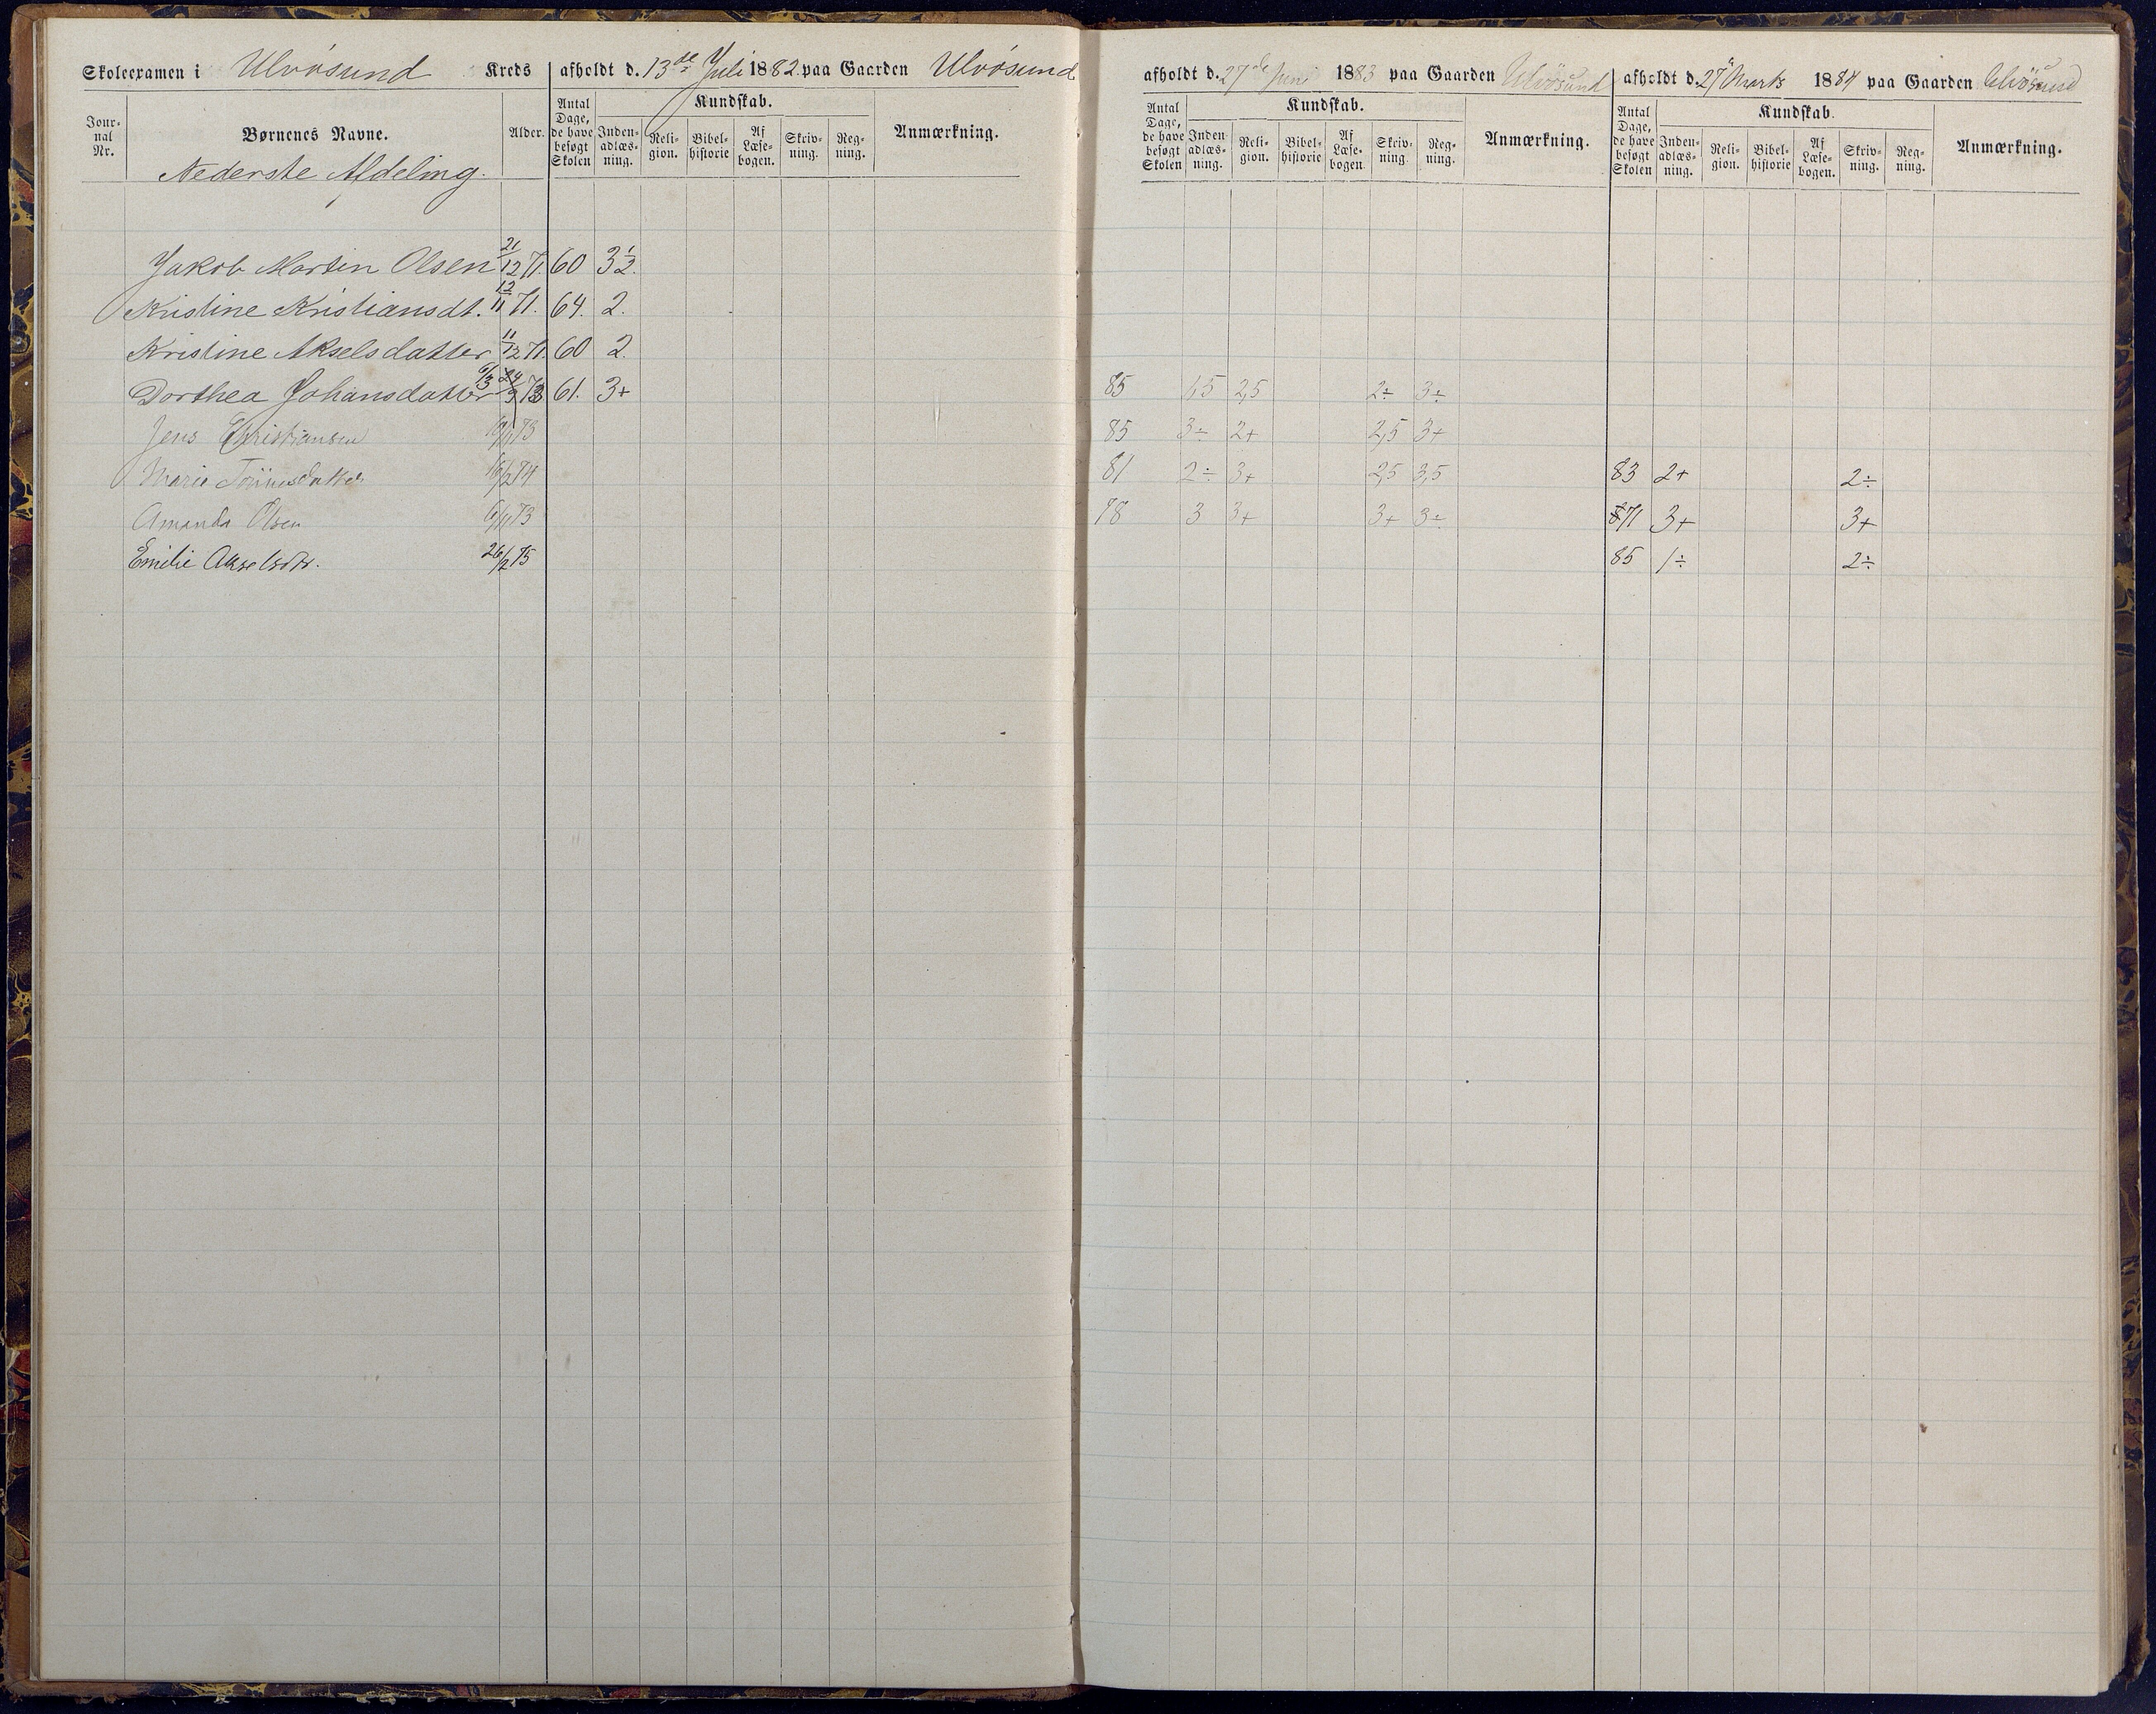 Skoleexamen i Ulvösund Kreds afholdt d. 13de Juli 1882 paa Gaarden Ulvösund
Jour-nal Nr. Børnenes Navne. Alder. Antal Dage, de have besøgt Skolen Kundskab. Inden-adlæs-ning. Reli-gion. Bibel-historie Af Læse-bogen. Skriv-ning. Reg-ning. Anmærkning.
Nederste Afdeling.
Jakob Martin Olsen 21/12 71. 60 3 1/2.
Kristine Kristiansdt. 12/11 71. 64. 2.
Kristine Akselsdatter 11/12 71. 60 2.
Dorthea Johansdatter 6/3 24/3 73 61. 3+
Jens Christiansen 73
Marie Tönnesdatter 16/2 74
Amanda Olsen 6/11 73
Emilie Akselsdtr. 26/2 75
afholdt d. 27de Juni 1883 paa Gaarden Ulvösund
Antal Dage, de have besøgt Skolen Kundskab. Inden-adlæs-ning. Reli-gion. Bibel-historie Af Læse-bogen. Skriv-ning. Reg-ning. Anmærkning.
85 1,5 2,5 2÷ 3÷
85 3÷ 2+ 2,5 3+
81 2÷ 3+ 2,5 3,5
78 3 3+ 3+ 3÷
afholdt d. 27 Marts 1884 paa Gaarden Ulvösund
Antal Dage, de have besøgt Skolen Kundskab. Inden-adlæs-ning. Reli-gion. Bibel-historie Af Læse-bogen. Skriv-ning. Reg-ning. Anmærkning.
83 2+ 2÷
71 3+ 3+
85 1÷ 2÷